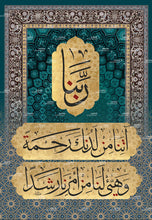 ربنا
آتنا من لدنك رحمة
وهيئ لنا من أمرنا رشدا